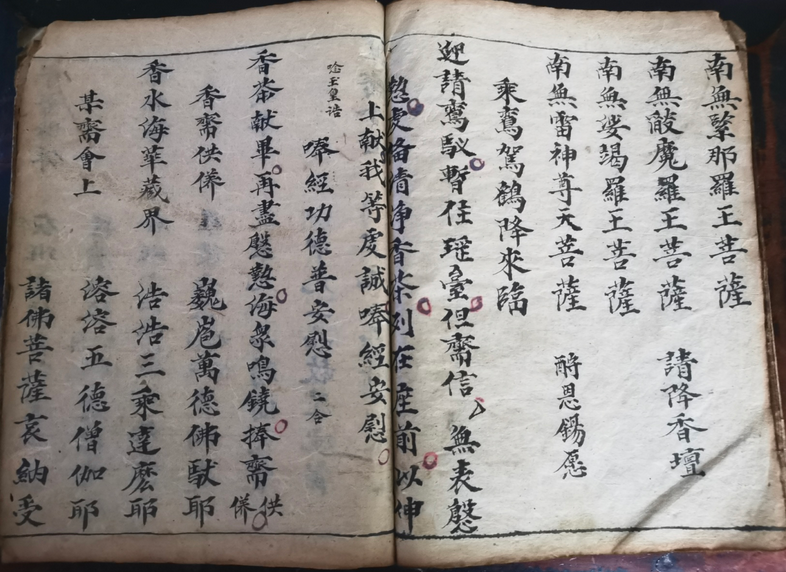 南無緊那羅王菩薩
南無散魔羅王菩薩　請降香壇
南無娑竭羅王菩薩
南無雷神尊天菩薩　酧恩錫愿
乘鸞駕鶴降來臨
迎請鸞馭暫住瑶臺但齋信無表慇
懃虔備清淨香茶列在座前以伸
上献我等虔誠唪經安慰
唸玉皇诰　唪經功德普安慰　二合
香茶献畢再盡慇懃海衆鳴鐃捧齋供儀
香齋供儀　巍嵬萬德佛馱耶
香水海華藏界　浩浩三乘達麽耶
某齋會上　溶溶五德僧伽耶
諸佛菩薩哀納受